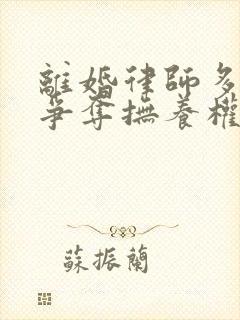 離婚律師多
爭奪撫養權
蘇振蘭